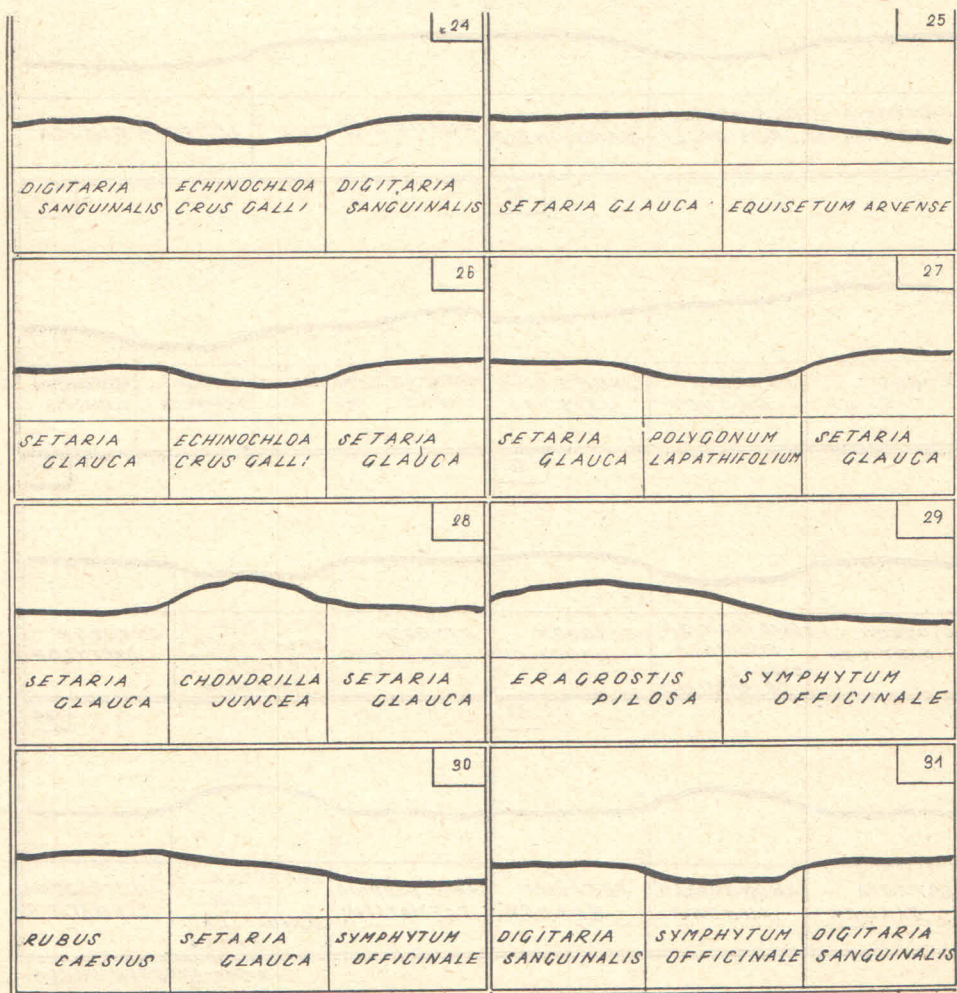 24
DIGITARIA
SANGUINALIS
ECHINOCHLOA
CRUS GALLI
DIGITARIA
SANGUINALIS
25
SETARIA GLAUCA
EQUISETUM ARVENSE
26
SETARIA
GLAUCA
ECHINOCHLOA
CRUS GALLI
SETARIA
GLAUCA
27
SETARIA
GLAUCA
POLYGONUM
LAPATHIFOLIUM
SETARIA
GLAUCA
28
SETARIA
GLAUCA
CHONDRILLA
JUNCEA
SETARIA
GLAUCA
29
ERAGROSTIS
PILOSA
SYMPHYTUM
OFFICINALE
30
RUBUS
CAESIUS
SETARIA
GLAUCA
SYMPHYTUM
OFFICINALE
31
DIGITARIA
SANGUINALIS
SYMPHYTUM
OFFICINALE
DIGITARIA
SANGUINALIS